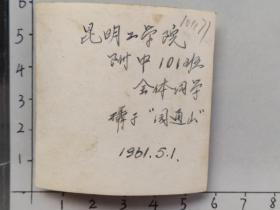 昆明工学院
附中101班
全体同学
摄于"园通山"
1961.5.1.
5
4
3
2
1
0 1 2 3 4 5 6 7 8